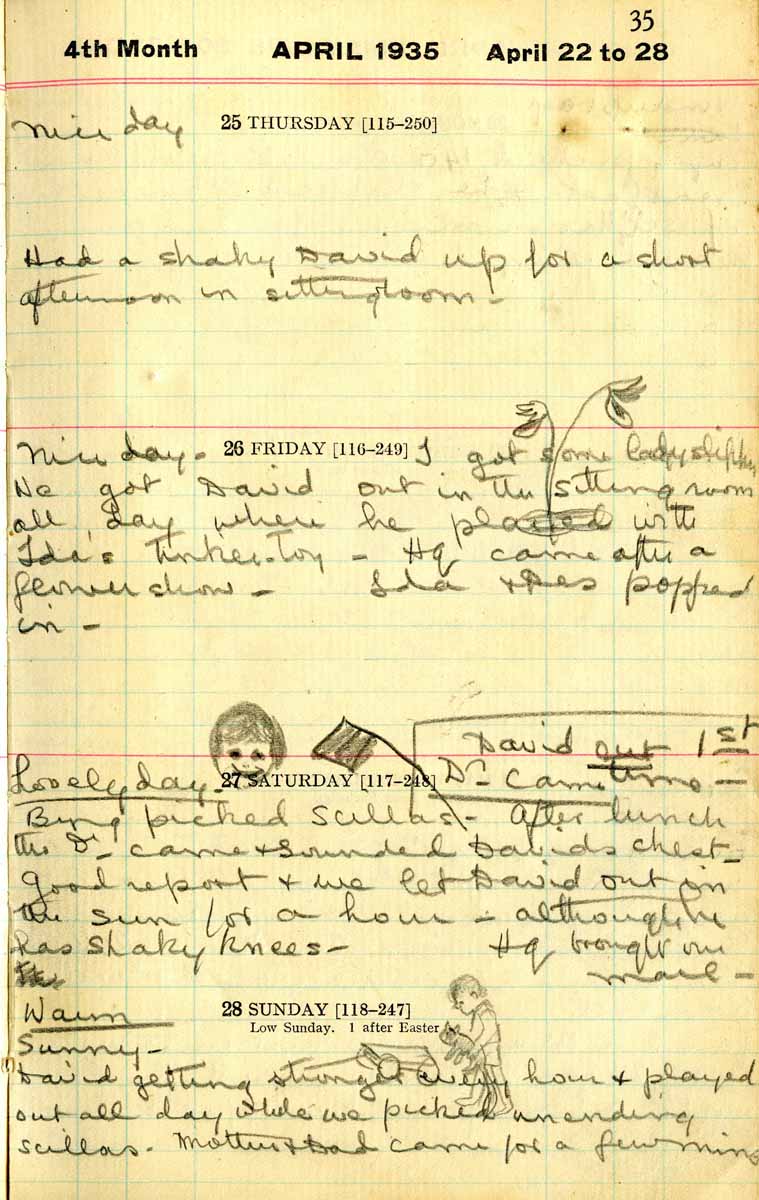 35
4th Month APRIL 1935 April 22 to 28
Nice day 25 THURSDAY [115–250]
Had a shaky David up for a short
afternoon in sittingroom –
Nice day – 26 FRIDAY [116–249] I got some ladyslippers
We got David out in the sitting room
all day where he played with
Ida's tinker-toy – Hq came after a
flower show – Ida & Des popped
in –
David out 1st
Lovely day – 27 SATURDAY [117–248] Dr came time –
Being picked scillas – After lunch
the Dr – came & sounded Davids chest –
Good report & we let David out in
the sun for a hour – although he
has shaky knees – Hq brought our
mail –
Warm 28 SUNDAY [118–247]
Low Sunday. 1 after Easter
Sunny –
David getting stronger every hour & played
out all day while we picked unending
scillas – Mother & Dad came for a few mins